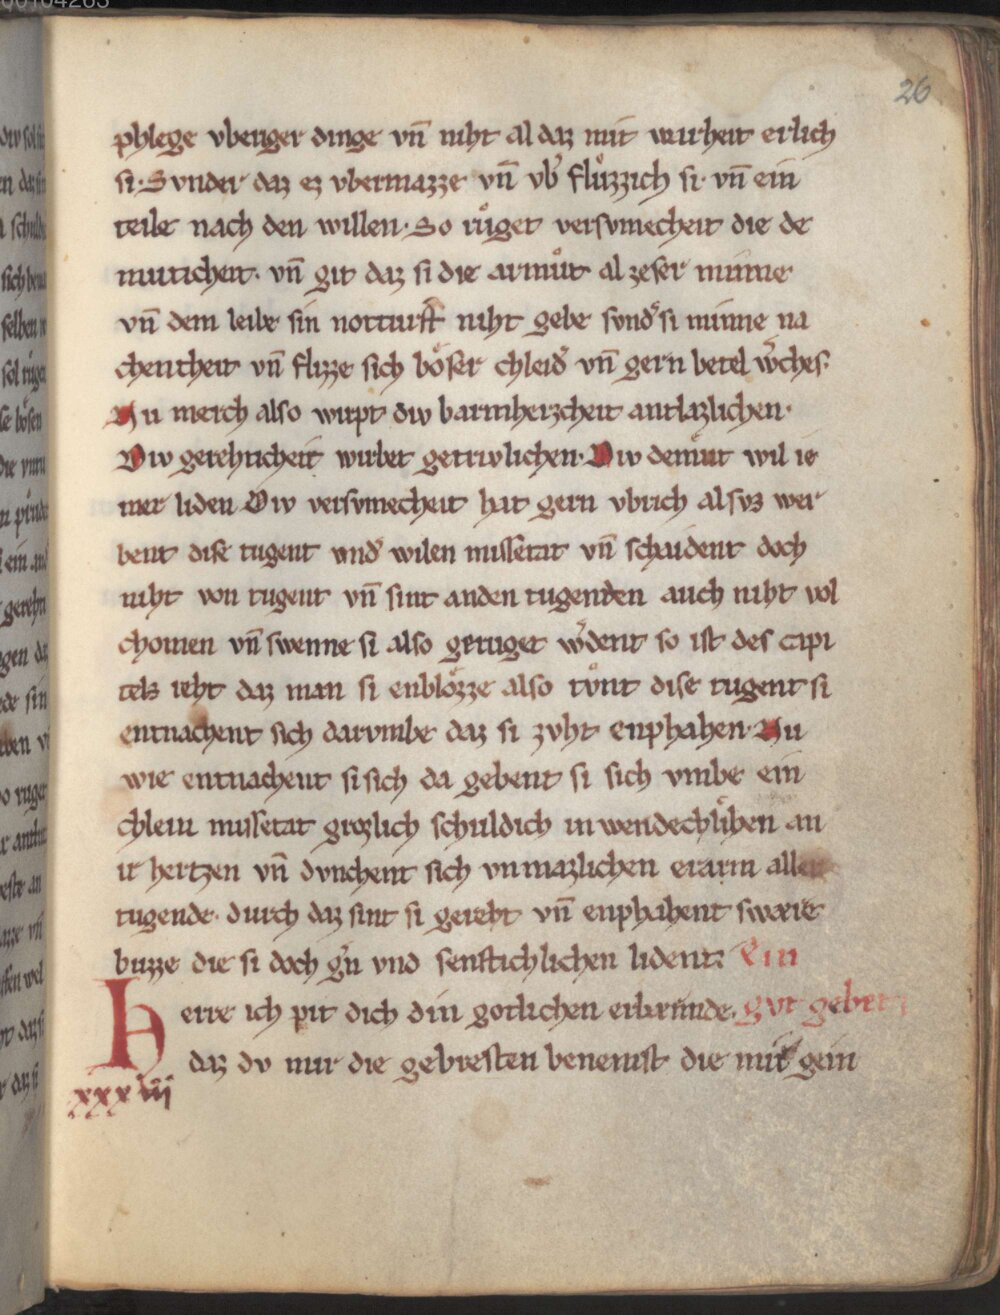 00104263
26
phlege vberiger dinge vn̄ niht al daz mit warheit erlich
si. Svnder daz ez vbermazze vn̄ vb̾ flüzzich si. vn̄ ein
teile nach den willen. So rüget versvmecheit die de
muticheit. vn̄ git daz si die armůt al zeser minne
vn̄ dem leibe sin notturft niht gebe sond̾ si minne na
chentheit vn̄ flizze sich böser chleid̾ vn̄ gern betel w̾ches.
Nu merch also wirpt div barmherzcheit antlazlichen.
Div gerehticheit wirbet getrivlichen. Div demüt wil ie
mer liden Div versvmecheit hat gern vbrich alsvz wer
bent dise tugent vnd̾ wilen missetat vn̄ schaident doch
niht von tugent vn̄ sint anden tugenden auch niht vol
chomen vn̄ swenne si also gerüget w̾dent so ist des capi
tels reht daz man si enblözze also tůnt dise tugent si
entnachent sich darvmbe daz si zvht enphahen. Nu
wie entnachent si sich da gebent si sich vmbe ein
chlein missetat grozlich schuldich inwendechlichen an
ir hertzen vn̄ dvnchent sich vnmazlichen erarm aller
tugende. durch daz sint si gereht vn̄ enphahent swaere
buzze die si doch g̾n vnd senftichlichen lident. Ein
Herre ich pit dich din gotlichen erbærmde. gvt gebet
daz dv mir die gebresten benemst die mit gein
xxxiii